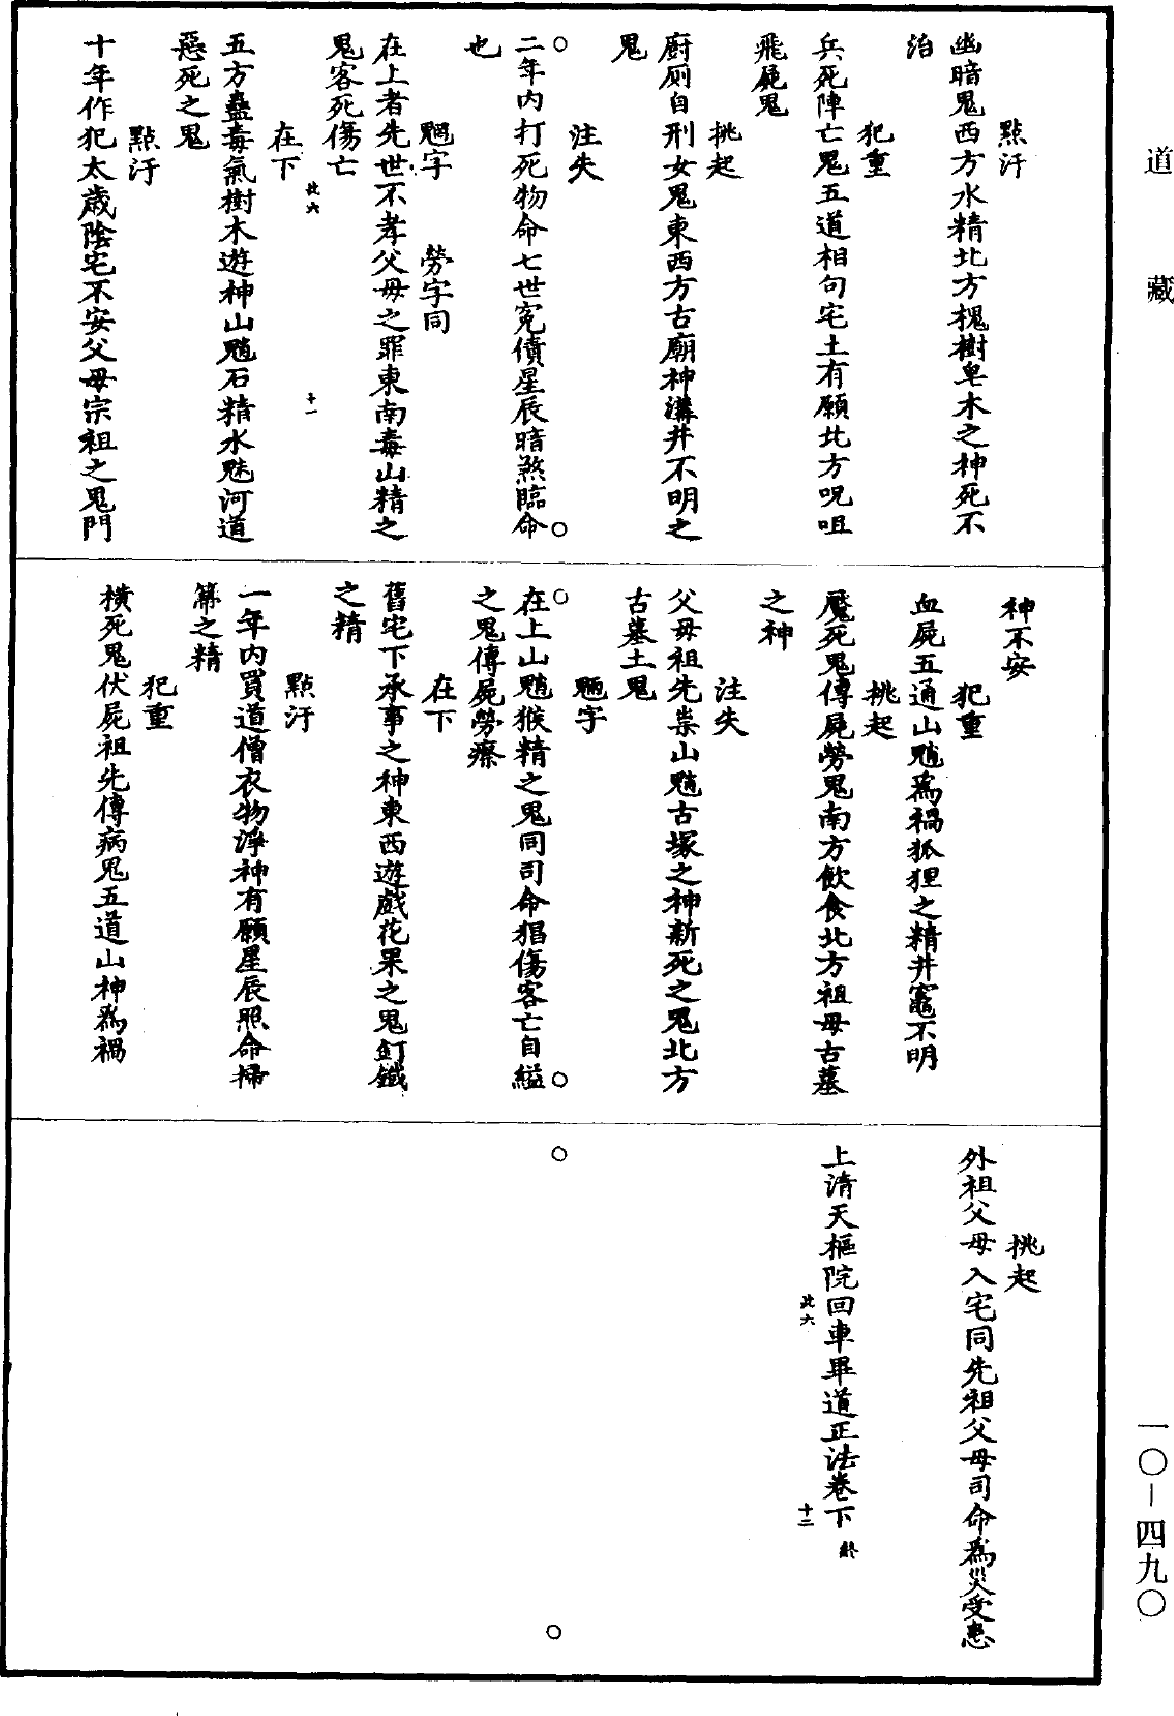 道藏
點汙
幽暗鬼西方水精北方槐樹皂木之神死不
治
犯重
兵死陣亡鬼五道相句宅土有願北方呪咀
飛屍鬼
挑起
廚厠自刑女鬼東西方古廟神溝井不明之
鬼
注失
二年内打死物命七世寃債星辰暗煞臨命
也
䰢字 勞字同
在上者先世不孝父母之罪東南毒山精之
鬼客死傷亡
在下
北六 十一
五方蠱毒氣樹木遊神山魈石精水魅河道
惡死之鬼
點汙
十年作犯太歲陰宅不安父母宗祖之鬼門
神不安
犯重
血屍五通山魈為禍狐狸之精井竈不明
挑起
魘死鬼傳屍勞鬼南方飲食北方祖母古墓
之神
注失
父母祖先祟山魈古塚之神新死之鬼北方
古墓土鬼
䰢字
在上山魈猴精之鬼同司命猖傷客亡自縊
之鬼傳屍勞瘵
在下
舊宅下承事之神東西遊戲花果之鬼釘鐵
之精
點汙
一年内買道僧衣物淨神有願星辰照命掃
箒之精
犯重
橫死鬼伏屍祖先傳病鬼五道山神為禍
挑起
外祖父母入宅同先祖父母司命為災受患
上清天樞院回車畢道正法卷下 終
北六 十二
一〇—四九〇